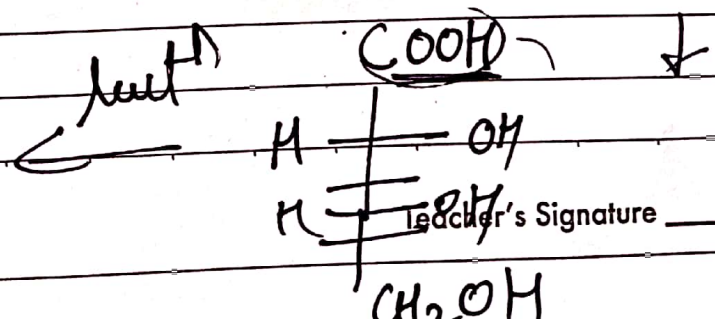 COOH
H OH
H OH
Teacher's Signature
CH₂OH